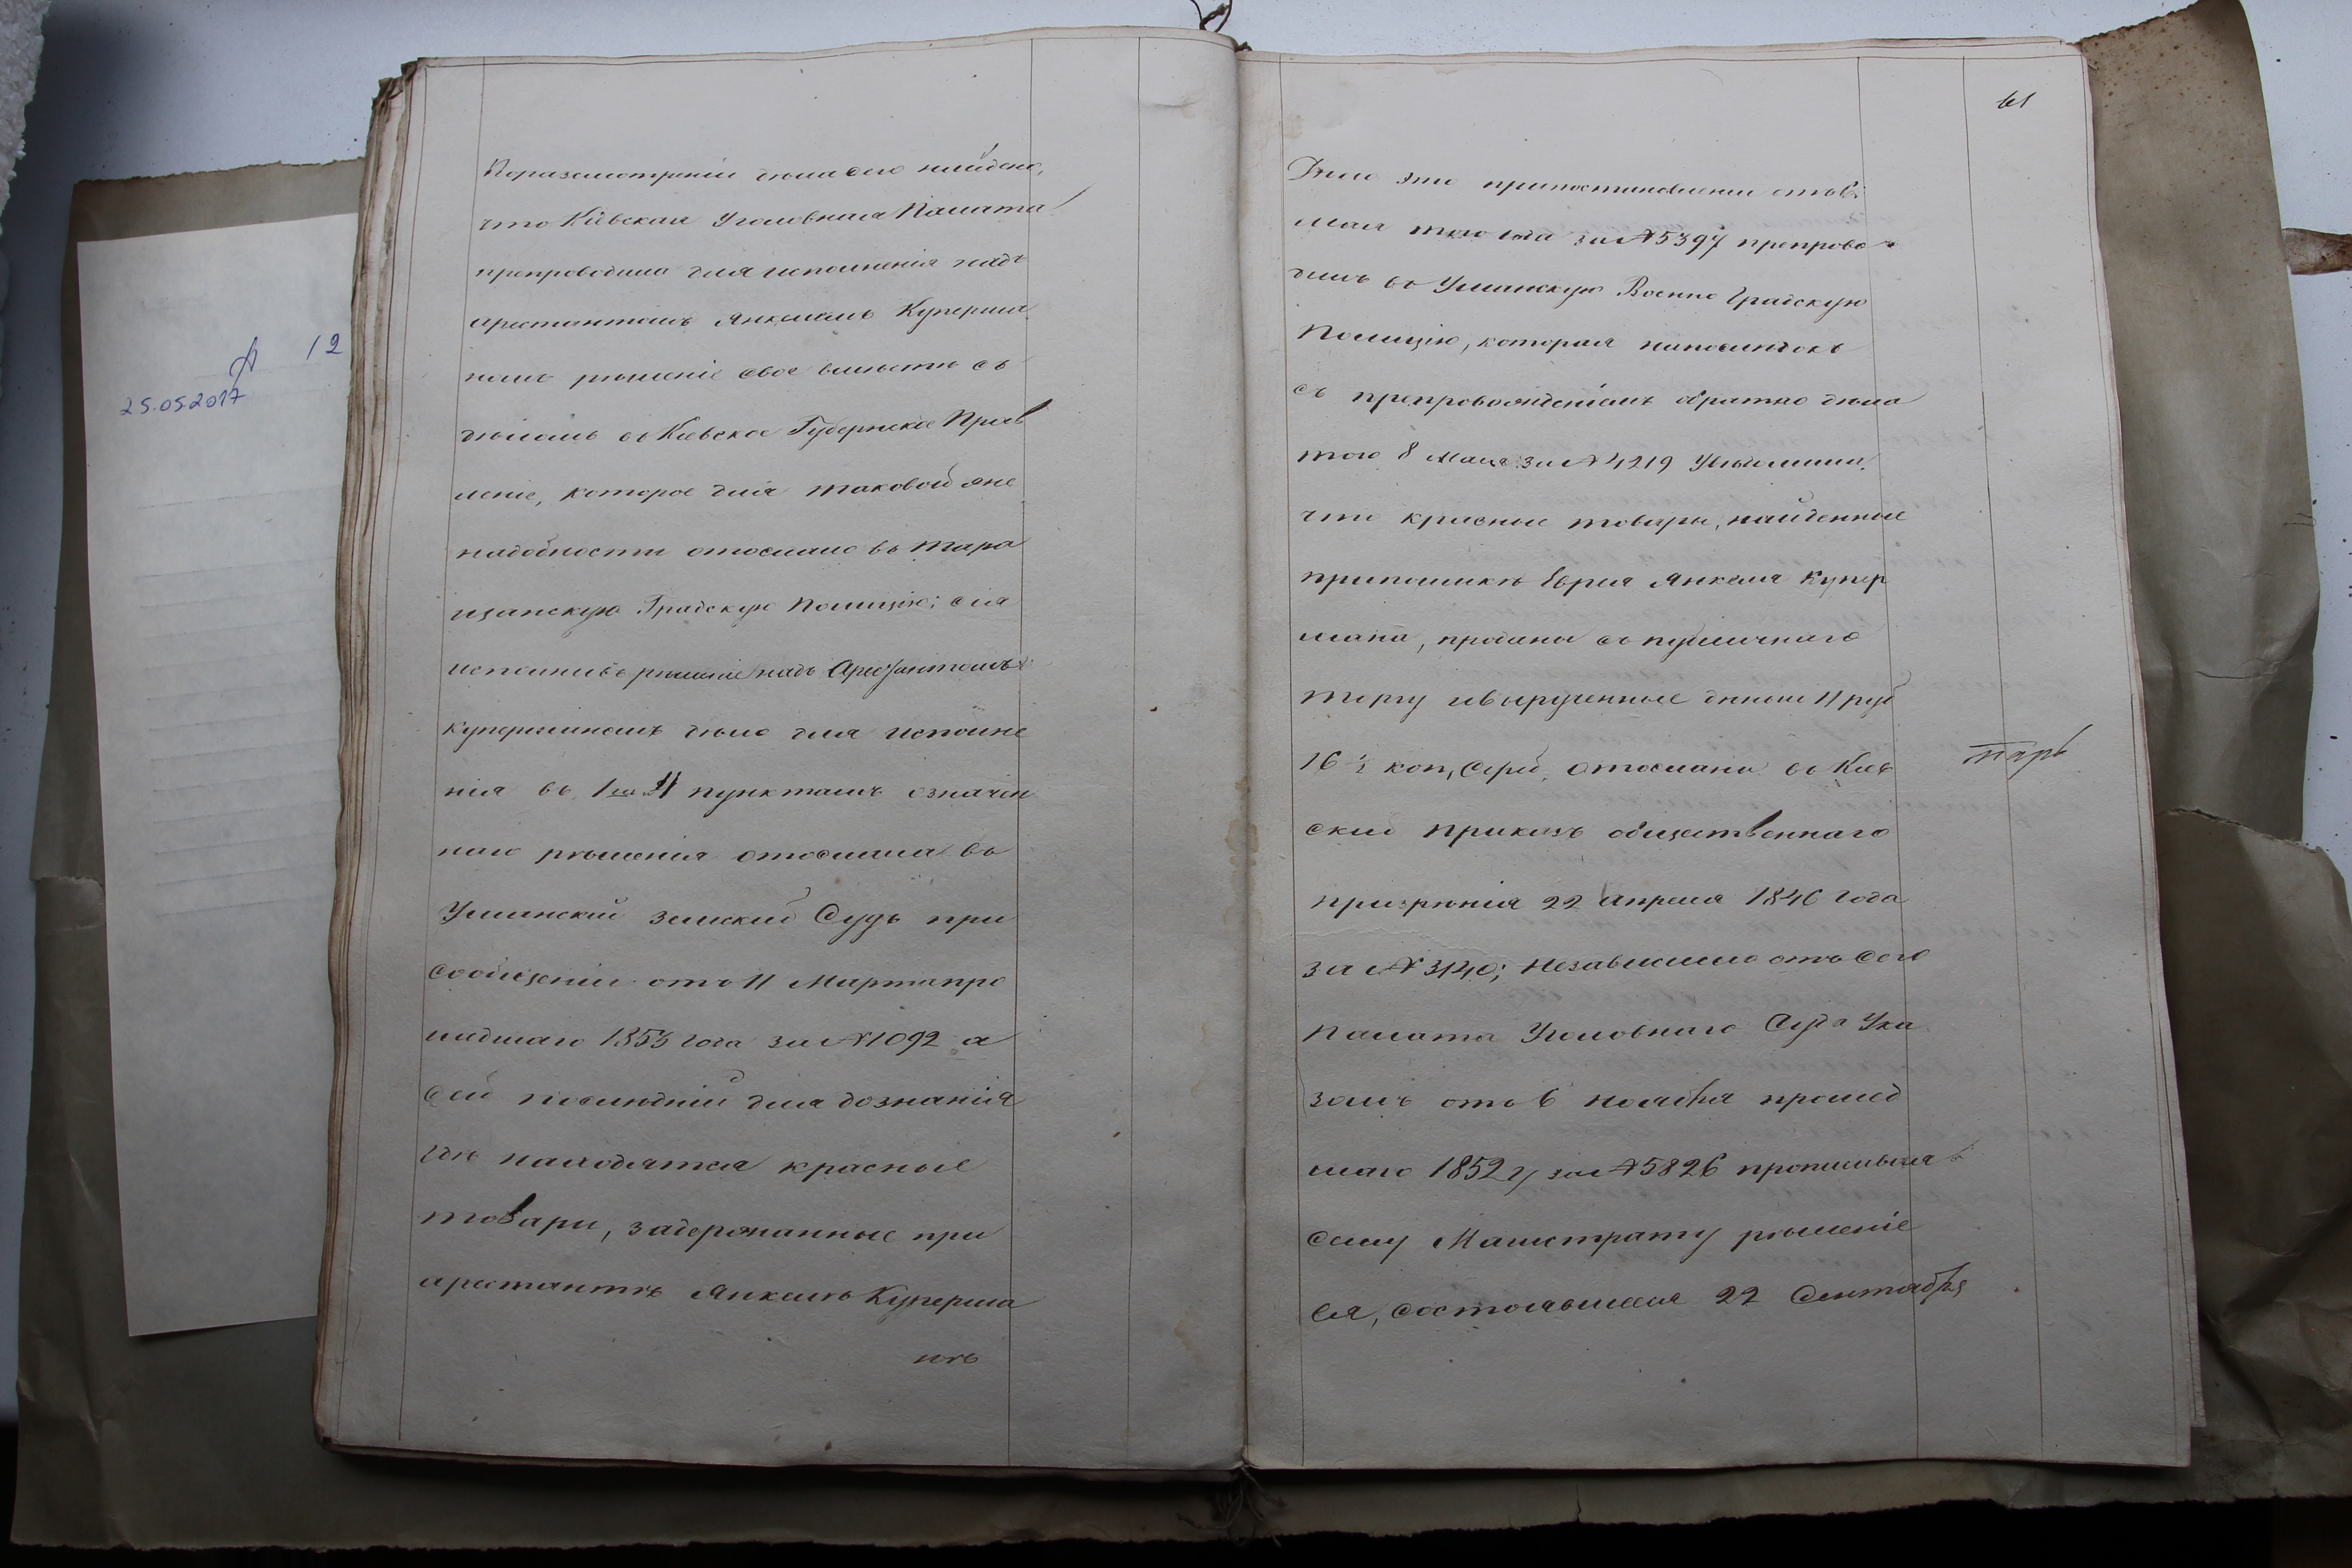 12
25.05.2017
Поразсмотреніи дѣла сего найдено,
что Кіевская Уголовная Палата
препроводила для исполненія надъ
арестантомъ Янкелемъ Куперма
номъ рѣшеніе свое вмѣстѣ съ
дѣломъ въ Кіевское Губернское Прав
леніе, которое для таковой же
надобности отослало въ Тара
щанскую Градскую Полицію; сія
исполнивъ рѣшеніе надъ Арестантомъ
Куперманомъ дѣло для исполне
нія въ 1 и пунктамъ означен
наго рѣшенія отослала въ
Уманскій Земскій Судъ при
сообщеніи отъ 11 Марта про
шедшаго 1853 года за № 1092 а
сей послѣдній для дознанія
гдѣ находятся красные
товари, задержанные при
арестантѣ Янкелѣ Куперма
нѣ
61
Дѣло это при отъ
мая того года за № 5397 препрово
дилъ въ Уманскую Военно Градскую
Полицію, которая
съ препровожденіемъ обратно дѣла
того 8 Мая за № 4219 Увѣдомила,
что красные товары, найденные
при Еврея Янкеля Купер
мана, проданы съ публичнаго
торгу и вырученные деньги 11 руб
16 ½ коп, Сереб. отосланы въ Кіев
скій приказъ общественнаго
призрѣнія 22 апреля 1846 года
за № 3140; Независимо отъ сего
Палата Уголовнаго Суда Ука
зомъ отъ 6 ноября прошед
шаго 1852 г, за № 5826 прописывая
сему Магистрату рѣшеніе
ея, состоявшееся 22 Сентября